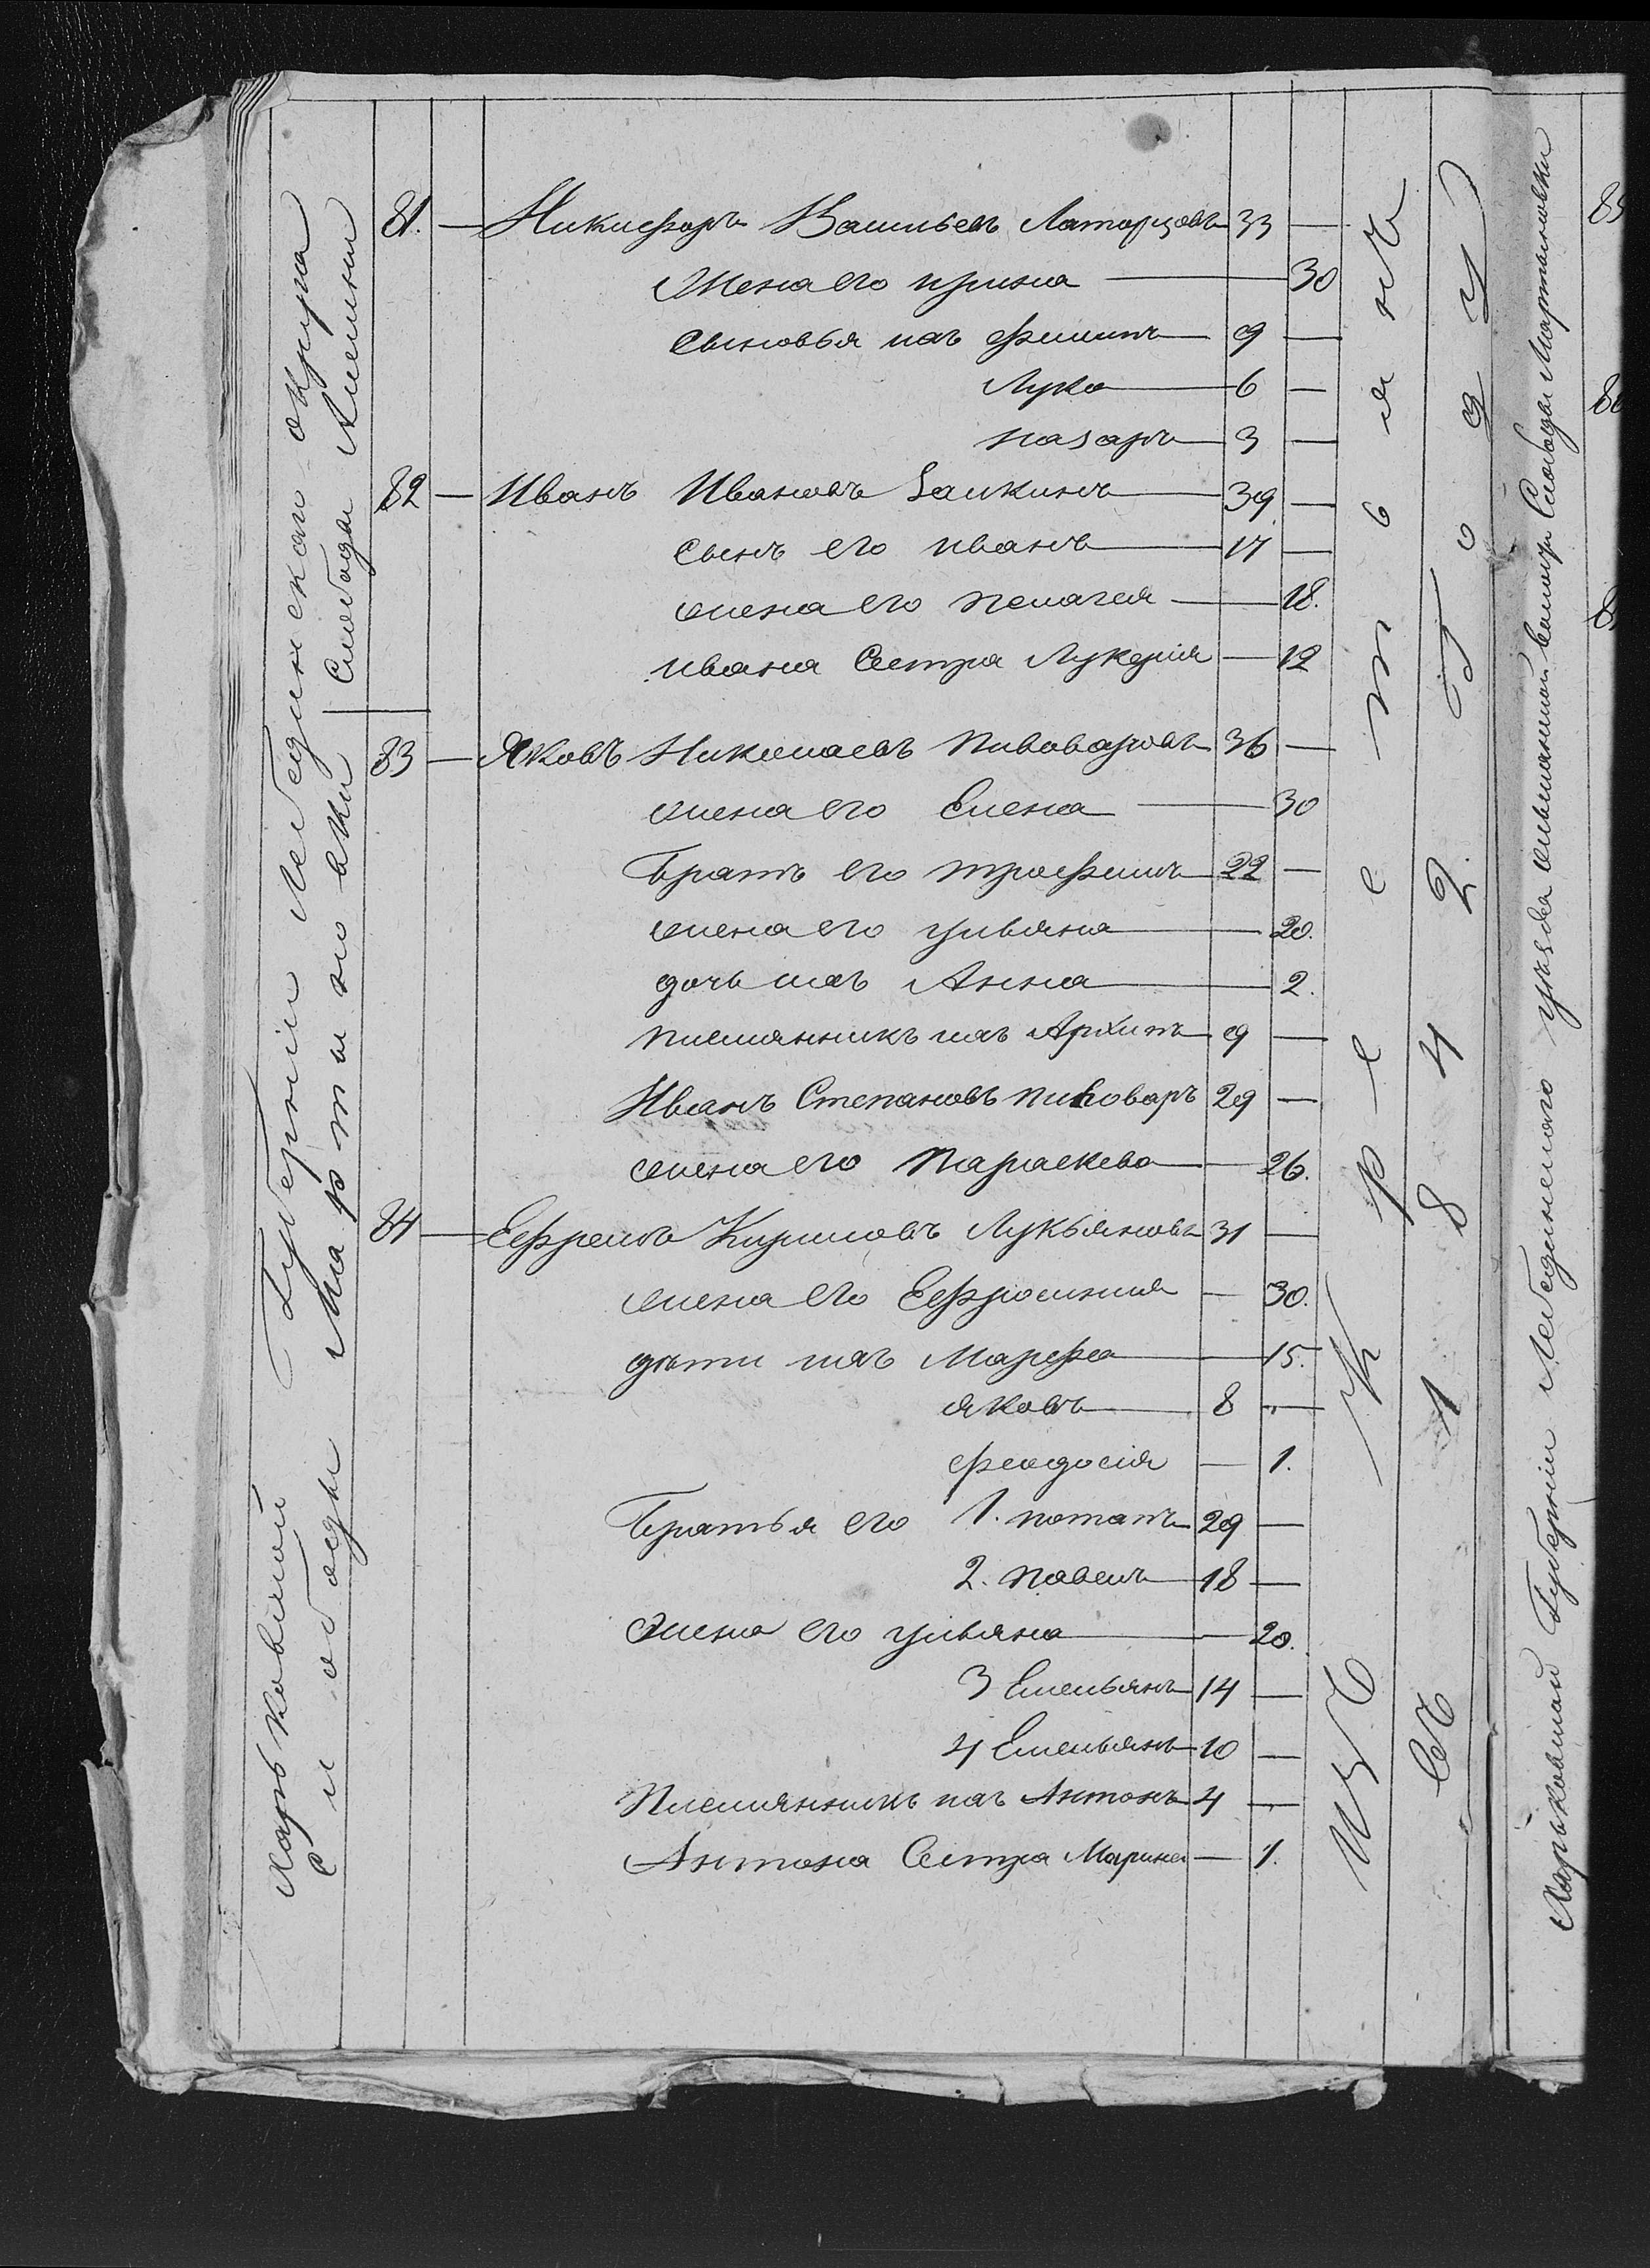 Харьковской Губерніи Лебединскаго округа
Слободы Мартыновки
Слободы
81. — Никифоръ Васильевъ 33 —
Жена его ирина — 30
Сыновья ихъ филипъ — 9 —
Лука — 6 —
назаръ — 3 —
82 — Иванъ Ивановъ Заикинъ — 39 —
Сынъ его иванъ — 17 —
жена его пелагея — 18.
ивана Сестра Лукерія — 12
83 — Яковъ Николаевъ пивоваровъ — 36 —
жена его Елена — 30
братъ его трофимъ — 22 —
жена его ульяна — 20.
дочь ихъ Анна — 2.
племянникъ ихъ Архипъ — 9 —
Иванъ Степановъ пивоваръ 29 —
жена его параскева — 26.
84 — Ефремъ Кириловъ Лукьяновъ 31 —
жена его Ефросинія — 30.
дѣти ихъ Марфа — 15.
яковъ — 8 —
феодосія — 1.
братья его 1. потапъ — 29 —
2. павелъ — 18 —
Жена его ульяна — 20.
3 Емельянъ — 14 —
4 Емельянъ — 10 —
Племянникъ ихъ Антонъ 4 —
Антона Сестра Марина — 1.
Изъ крестьянъ
Съ 1842 года
Харьковской Губерніи Лебединскаго уѣзда ольшанской волости Слободы Мартыновки